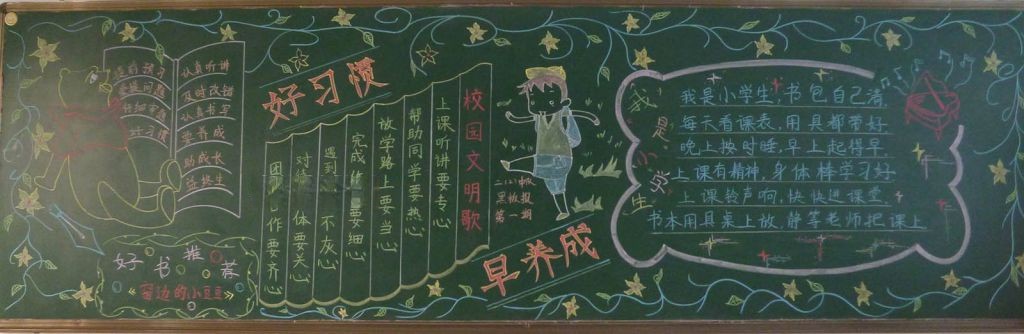 认真听讲
及时改错
认真书写
要养成
助成长
益终生
好习惯
好书推荐
《窗边的小豆豆》
好习惯
早养成
校园文明歌
上课听讲要专心
帮助同学要热心
放学路上要当心
完成作业要细心
遇到 不灰心
对待 体要关心
团 作要齐心
二(2)中队
黑板报
第一期
我是小学生
我是小学生,书包自己清,
每天看课表,用具都带好
晚上按时睡,早上起得早,
上课有精神,身体棒学习好
上课铃声响,快快进课堂
书本用具桌上放,静等老师把课上